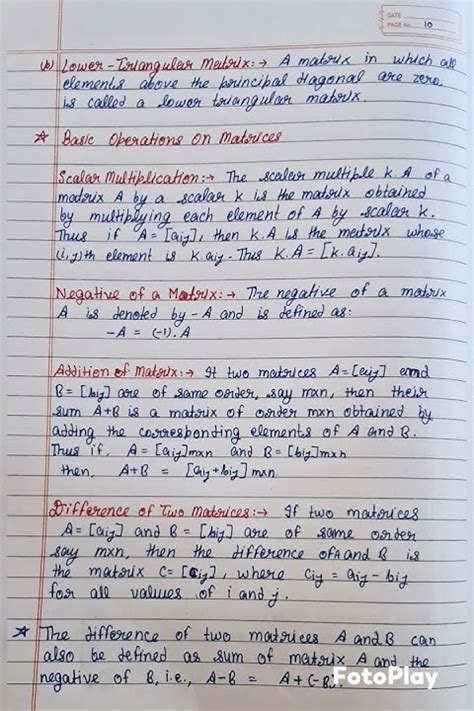 DATE
PAGE No. 10
(b) Lower-Triangular Matrix:→ A matrix in which all
elements above the principal diagonal are zero,
is called a lower triangular matrix.
☆ Basic Operations On Matrices
Scalar Multiplication:→ The scalar multiple k.A of a
matrix A by a scalar k is the matrix obtained
by multiplying each element of A by scalar k.
Thus if A = [aij], then k.A is the matrix whose
(i,j)th element is k.aij. Thus k.A = [k.aij].
Negative of a Matrix:→ The negative of a matrix
A is denoted by -A and is defined as:
-A = (-1).A
Addition of Matrix:→ If two matrices A=[aij] and
B=[bij] are of same order, say mxn, then their
sum A+B is a matrix of order mxn obtained by
adding the corresponding elements of A and B.
Thus if, A = [aij]mxn and B=[bij]mxn
then, A+B = [aij+bij]mxn.
Difference of Two Matrices:→ If two matrices
A=[aij] and B=[bij] are of same order
say mxn, then the difference of A and B is
the matrix C=[cij], where cij = aij - bij
for all values of i and j.
☆ The difference of two matrices A and B can
also be defined as sum of matrix A and the
negative of B, i.e., A-B = A+(-B).
FotoPlay